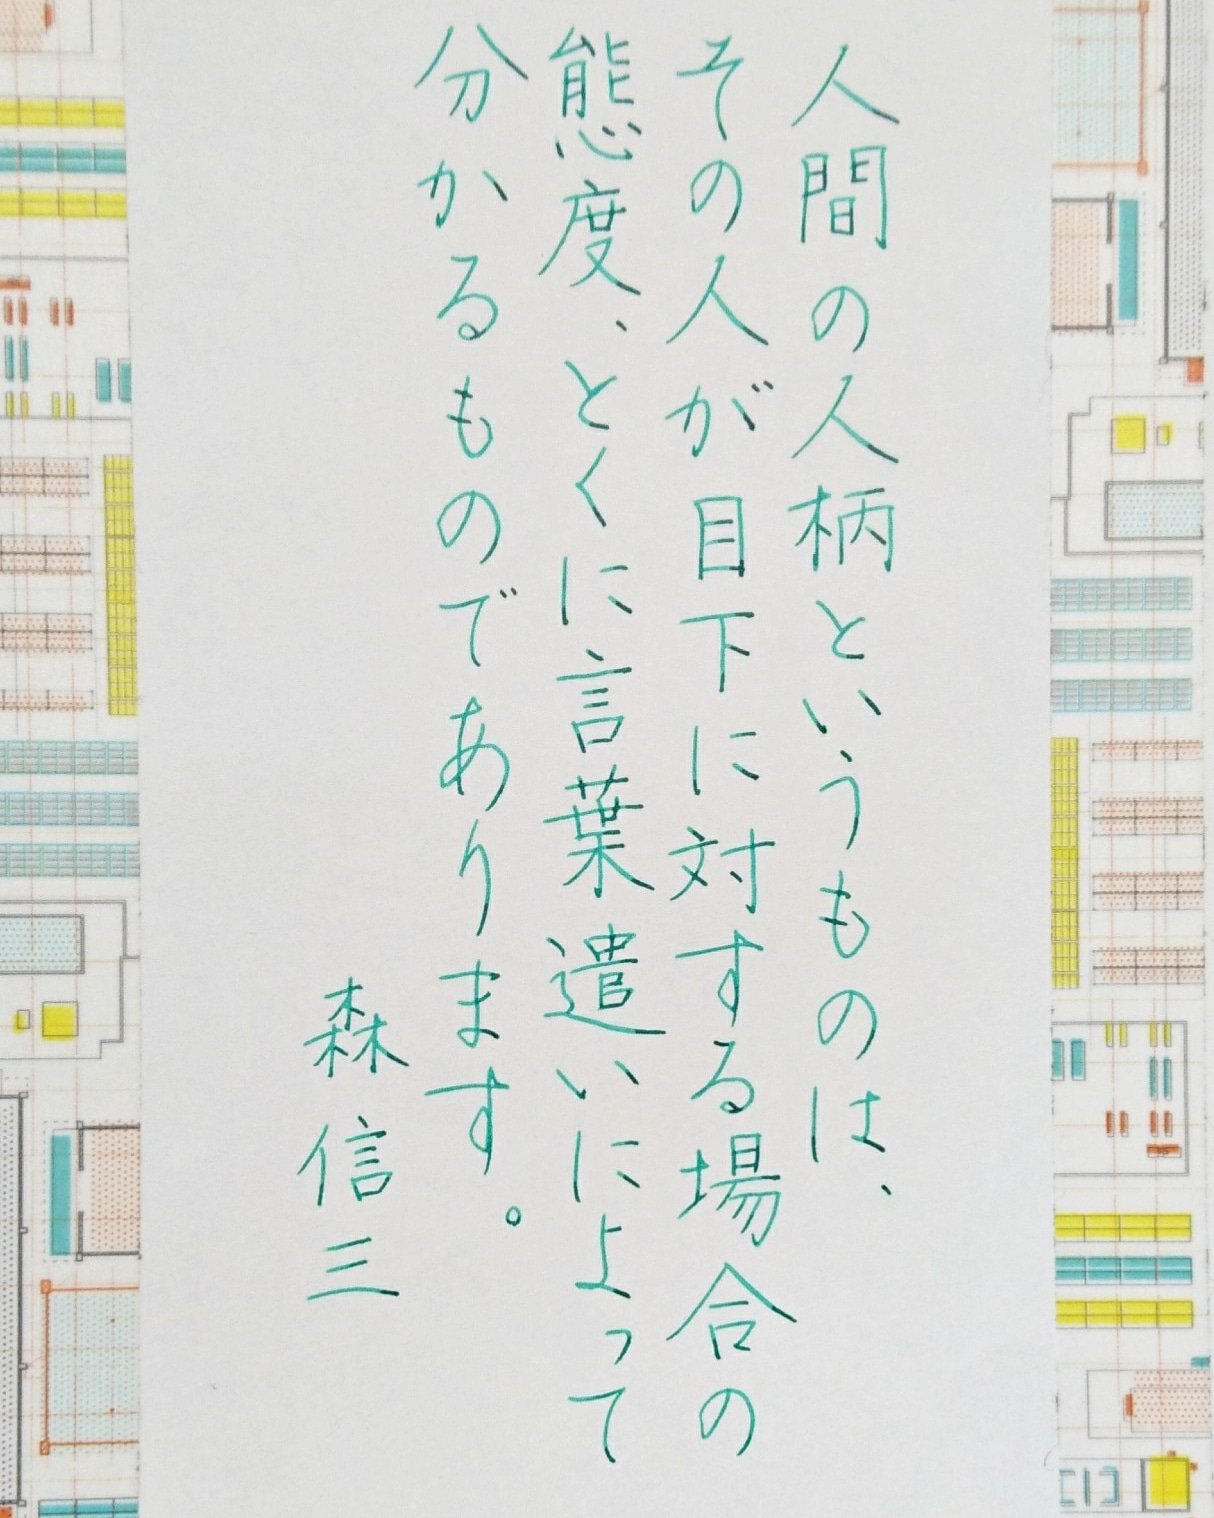 人間の人柄というものは、
その人が目下に対する場合の
態度、とくに言葉遣いによって
分かるものであります。
森信三